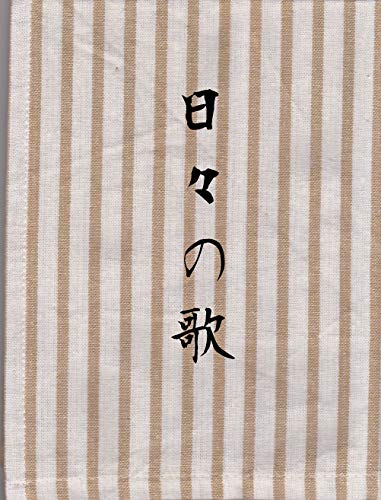 日々の歌